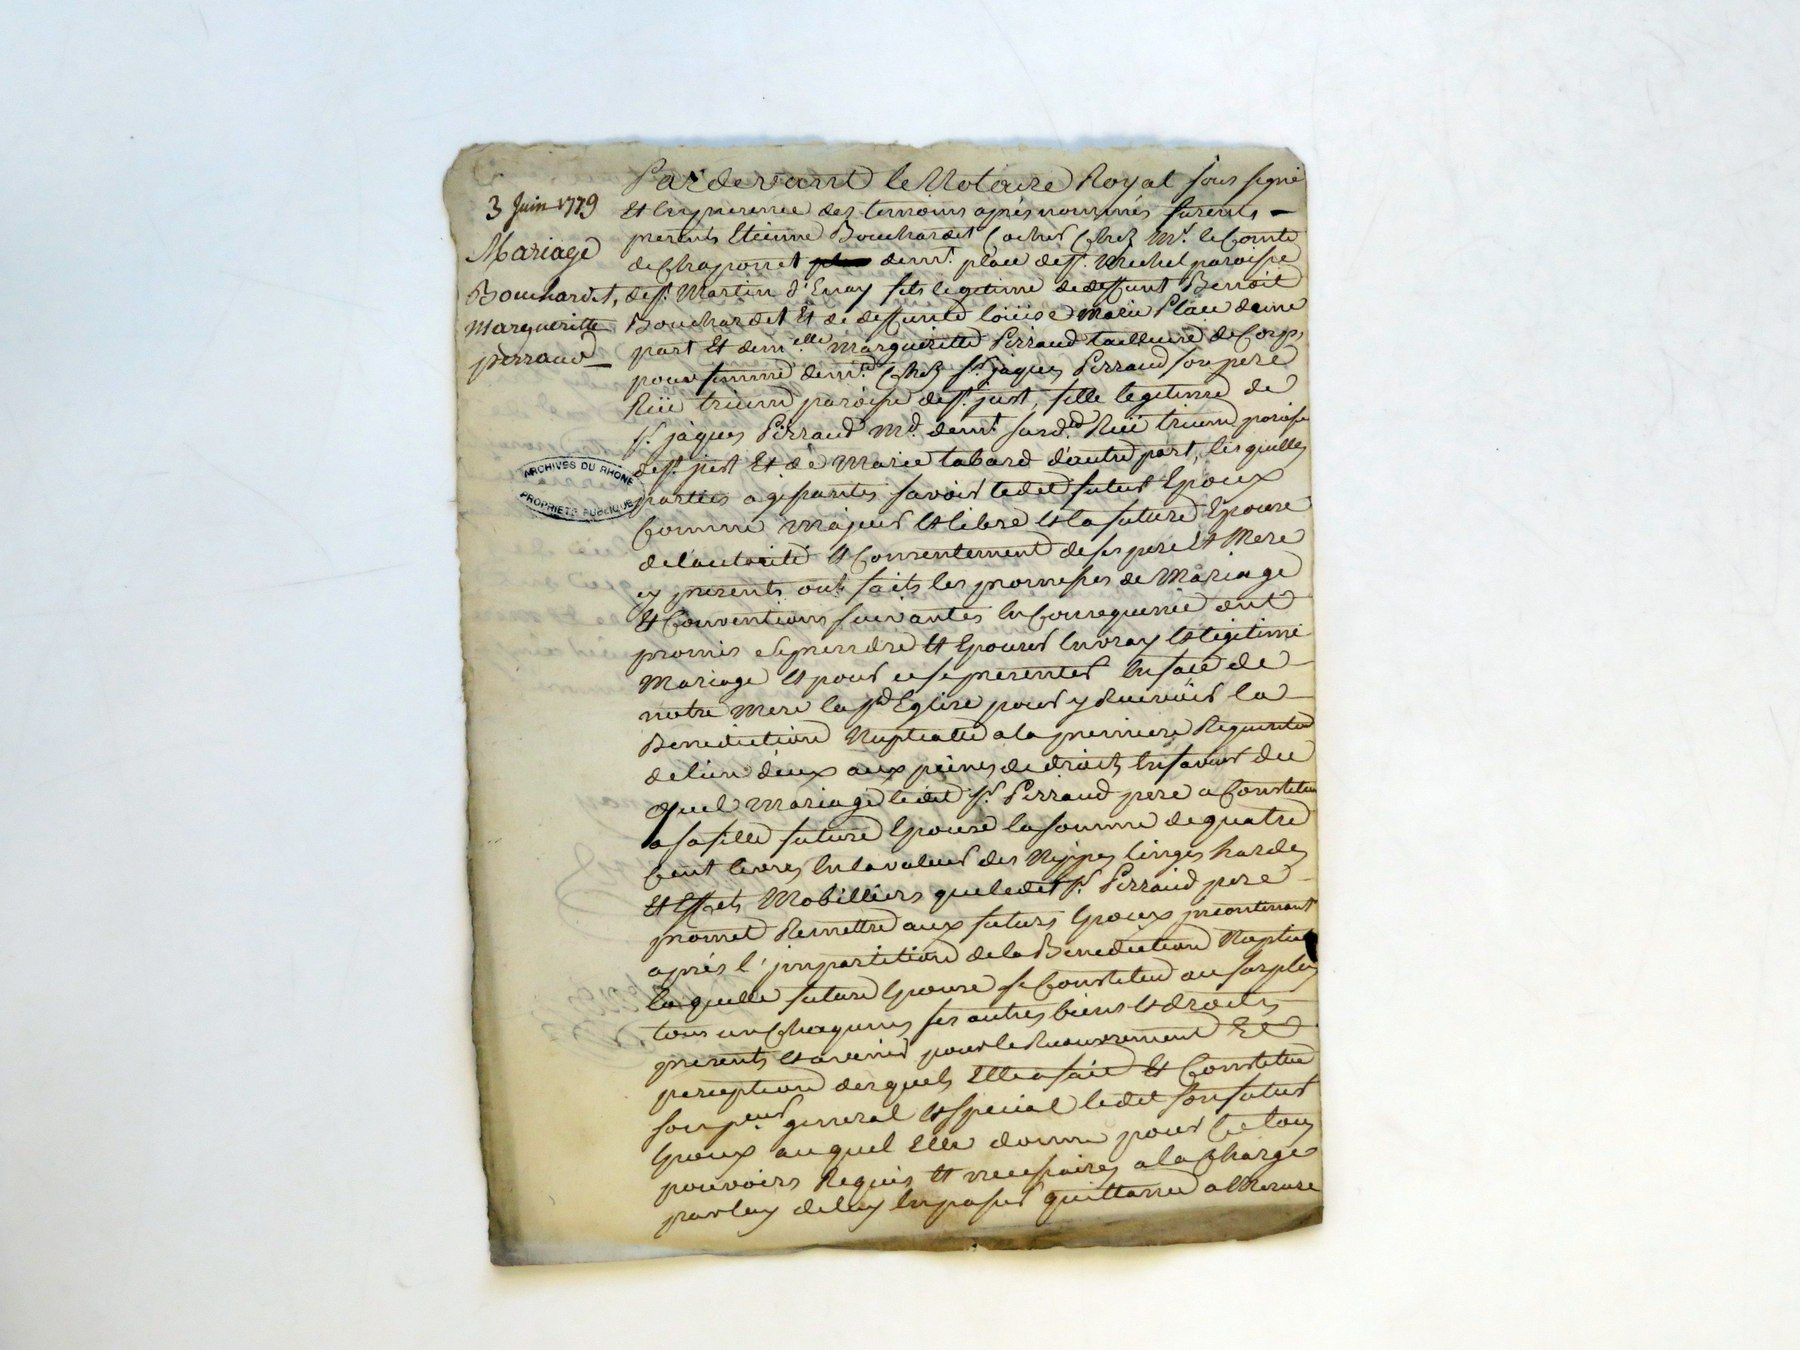 3 Juin 1779
Mariage
Bouchardet,
Margueritte
perraud
ARCHIVES DU RHONE
PROPRIETE PUBLIQUE
Pardevant le Notaire Royal sous signé
Et En presence des temoins après nommés furent
presents Etienne Bouchardet Cocher Chez Mr. le Comte
de Chaponet demt. place de st. Michel paroisse
de st. Martin d'Enay fils legitime de deffunt Benoit
Bouchardet Et de deffunte loüise Marie Place d'une
part Et demlle Margueritte Perraud tailleuse de Corps
pour femme demte. Chez sr. jaques Perraud son pere
Rüe trium paroisse de st. just, fille legitime de
sr. jaques Perraud Md. demt. susde. Rüe trium paroisse
de st. just Et de Marie tabard d'autre part, lesquelles
parties agissantes savoir ledit futur Epoux
Comme Majeur Et libre Et la future Epouse
de l'autorité Et Consentement de ses pere Et Mere
cy presents ont faits les promesses de Mariage
Et Conventions suivantes En Consequence ont
promis se prendre Et Epouser En vray Et legitime
Mariage Et pour ce se presenter En face de
notre Mere la ste Eglise pour y Recevoir la
Benediction Nuptialle a la premiere Requisition
de l'un d'eux aux peines de droit, En faveur du
quel Mariage ledit sr. Perraud pere a Constitué
a sa fille future Epouse la somme de quatre
Cent livres En la valeur des Nippes linges hardes
Et Effets Mobilliers que ledit sr. Perraud pere
promet Remettre aux futurs Epoux incontinant
après l'impartition de la Benediction Nuptialle
laquelle future Epouse se Constitue au surplus
tous un Chaquuns ses autres biens Et droits
presents Et avenir pour le Recouvrement Et
perception desquels Elle a fait Et Constitué
son preur general Et special ledit son futur
Epoux auquel Elle donne pour Ce tous
pouvoirs Requis Et necessaires a la Charge
par luy de luy En passer quittance a Mesure